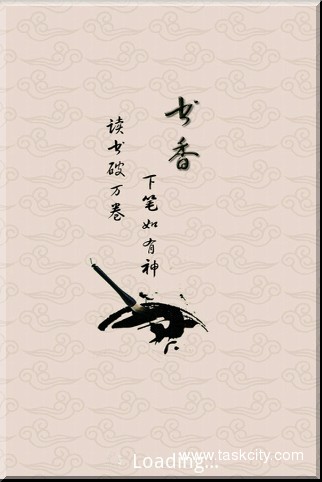 书香
读书破万卷
下笔如有神
www.taskcity.com
Loading...